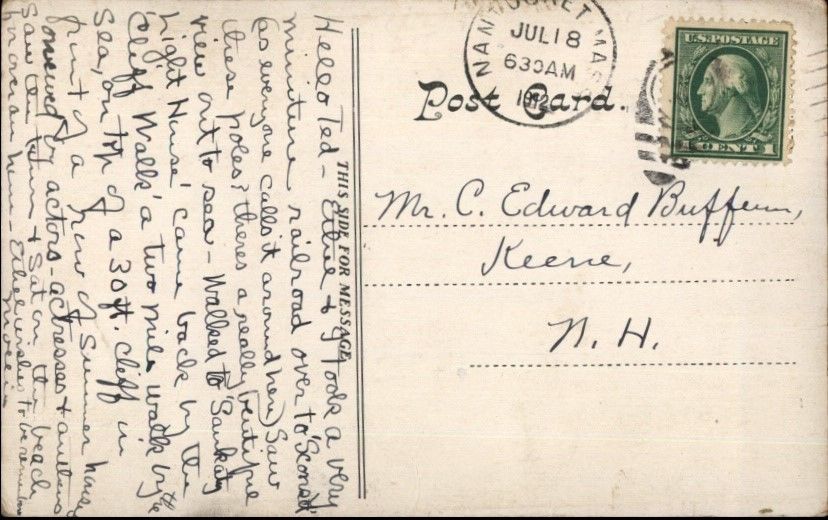 Post Card.
THIS SIDE FOR MESSAGE
NANTUCKET MASS
JUL 18
630AM
1912
U.S. POSTAGE
1 CENT 1
Mr. C. Edward Buffum,
Keene,
N. H.
Hello Ted - Ethel & I took a very
miniture railroad over to 'Sconset
(as everyone calls it around here) Saw
these poles & theres a really beutiful
view out to sea - Walked to 'Sankaty
Light House' came back by the
'Cliff Walk' a two mile walk by the
Sea, on top of a 30 ft. cliff in
front of a row of Summer houses
owned by actors - actresses & authors
Saw the & Sat on the beach
Ethel wishes to be remembered